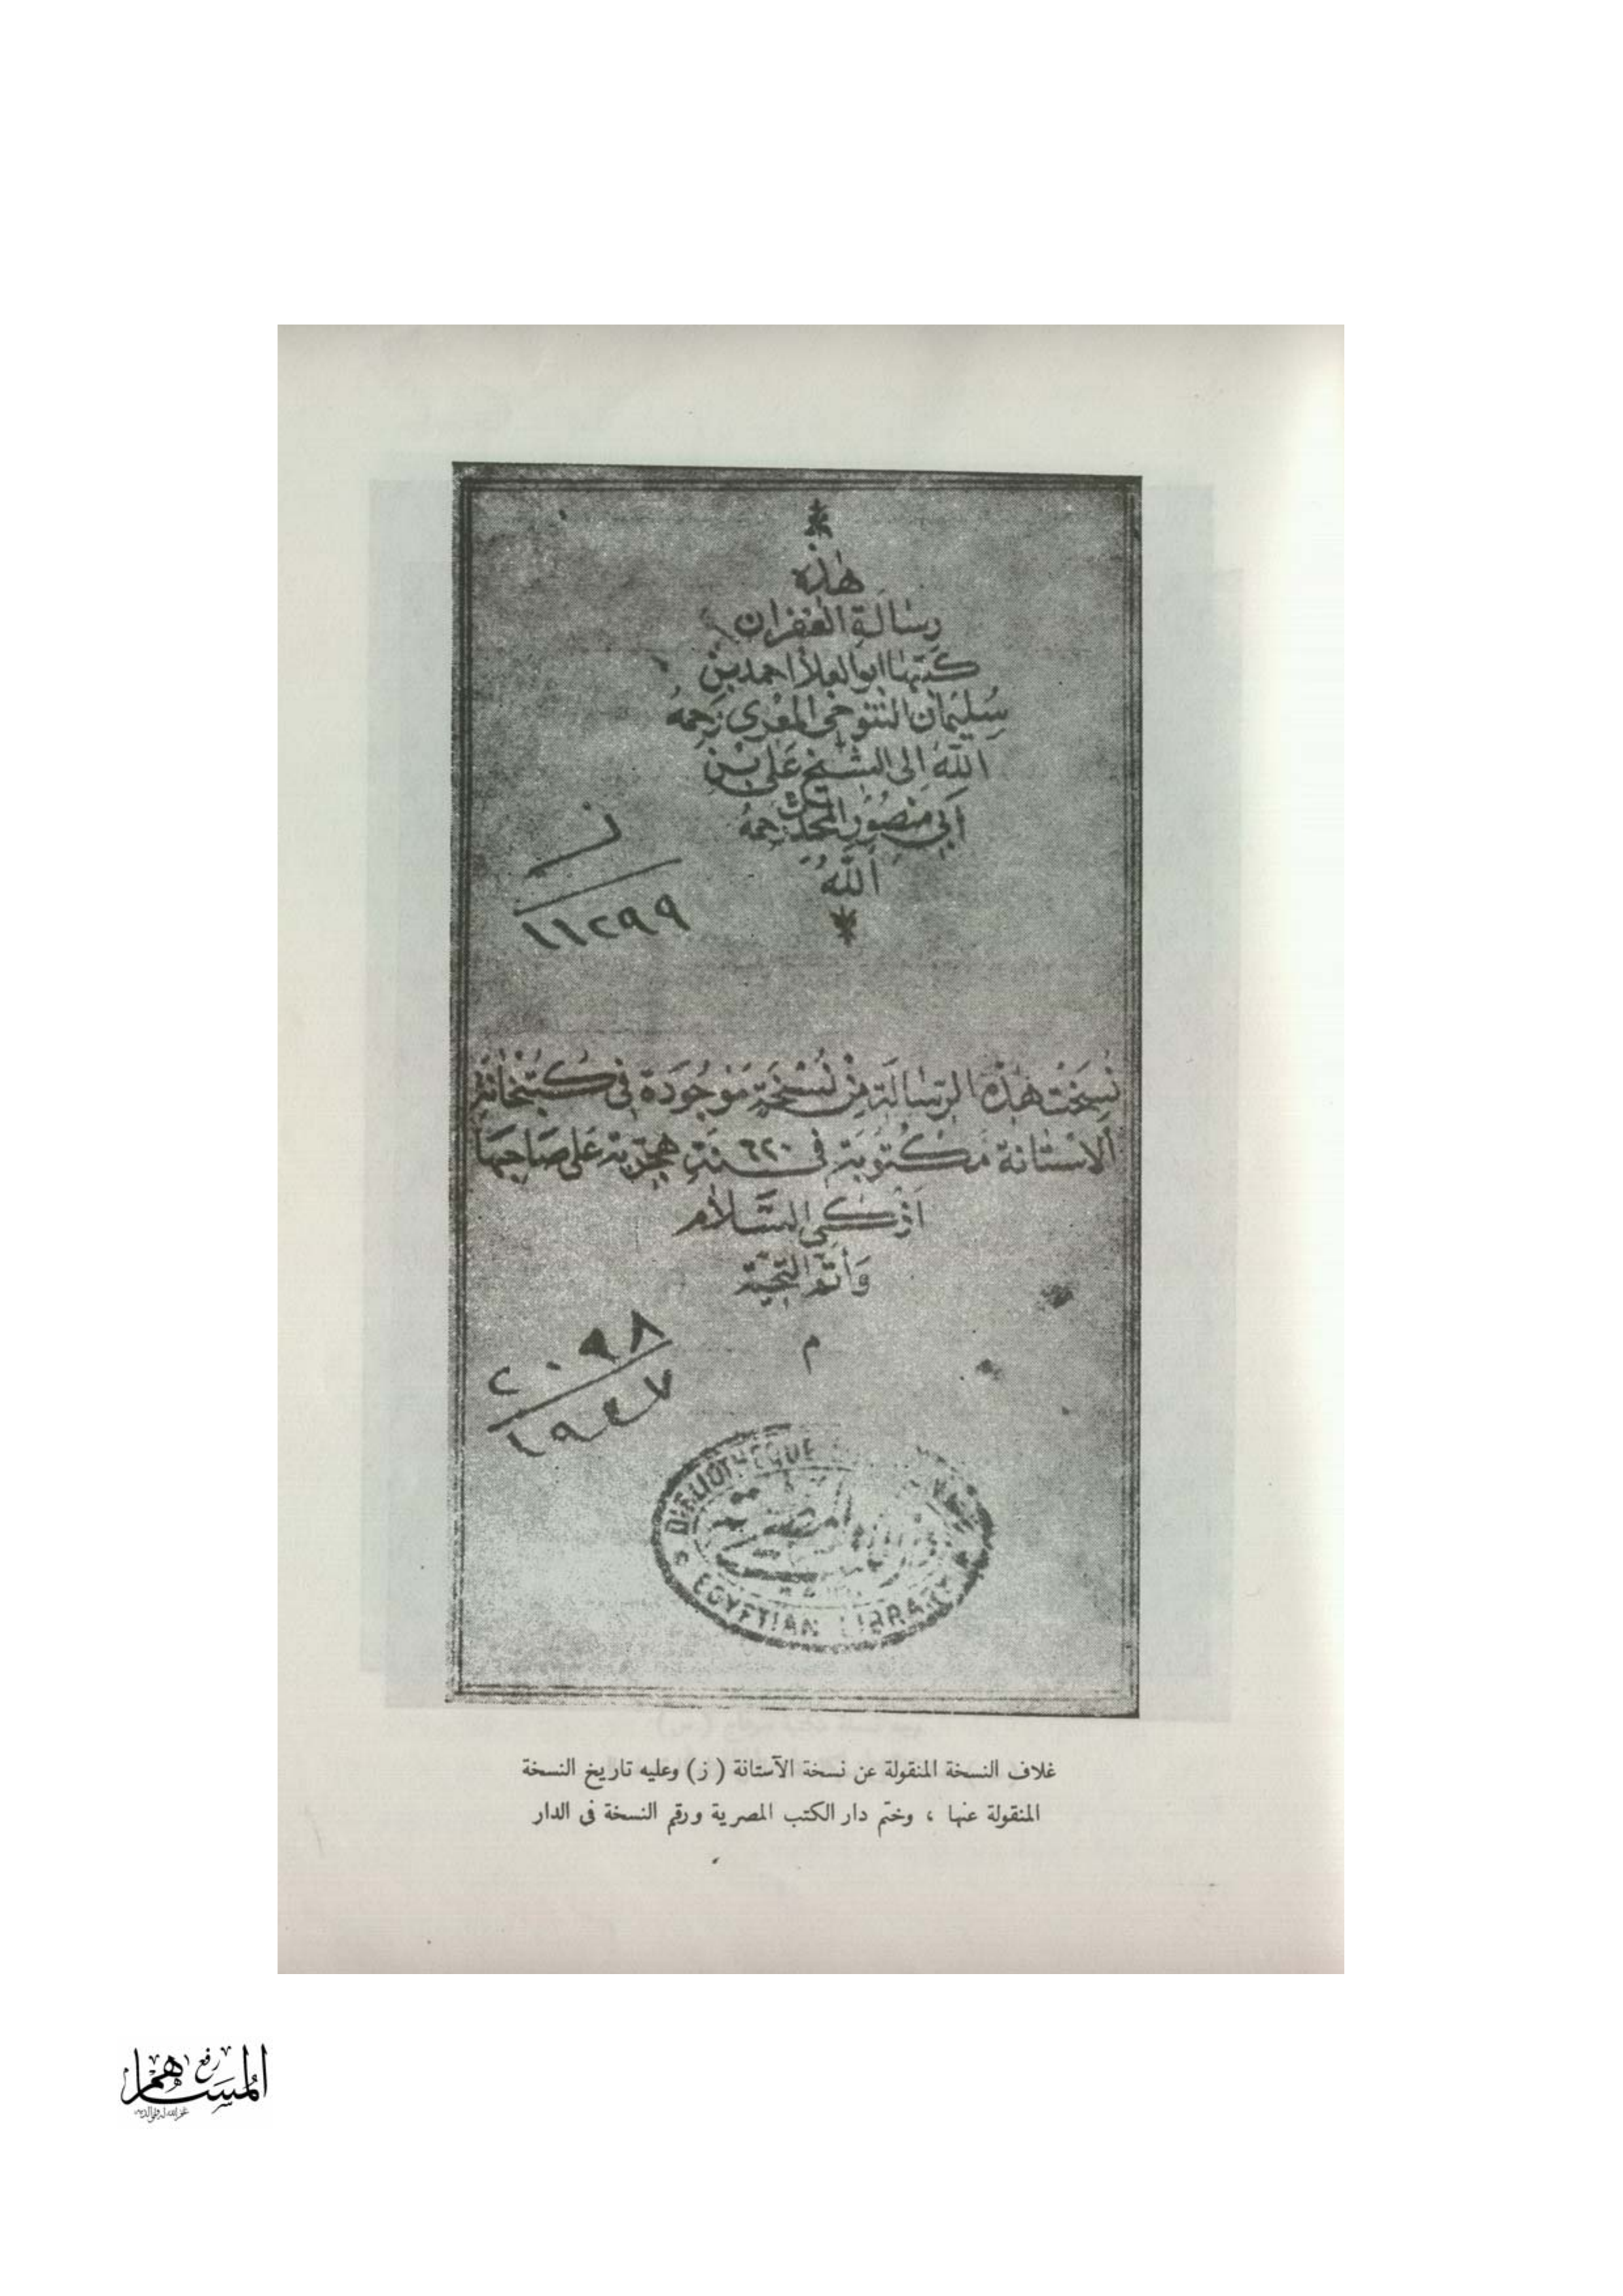 هذه
رسالة الغفران
كتبها ابو العلا احمد بن
سليمان التنوخي المعري رحمه
الله الى الشيخ على بن
أبي منصور المحدث رحمه
الله
ز
١١٢٩٩
نسخت هذه الرسالة من نسخة موجودة في كتبخانة
الاستانة مكتوبة في سنة ٦٢٠ هجرية على صاحبها
ازكى السلام
وأتم التحية
م
٢٠٩٨
١٩٤٧
BIBLIOTHEQUE
EGYPTIAN LIBRARY
غلاف النسخة المنقولة عن نسخة الآستانة ( ز ) وعليه تاريخ النسخة
المنقولة عنها ، وختم دار الكتب المصرية ورقم النسخة فى الدار
رفع
المساهم
غفر الله له ولوالديه